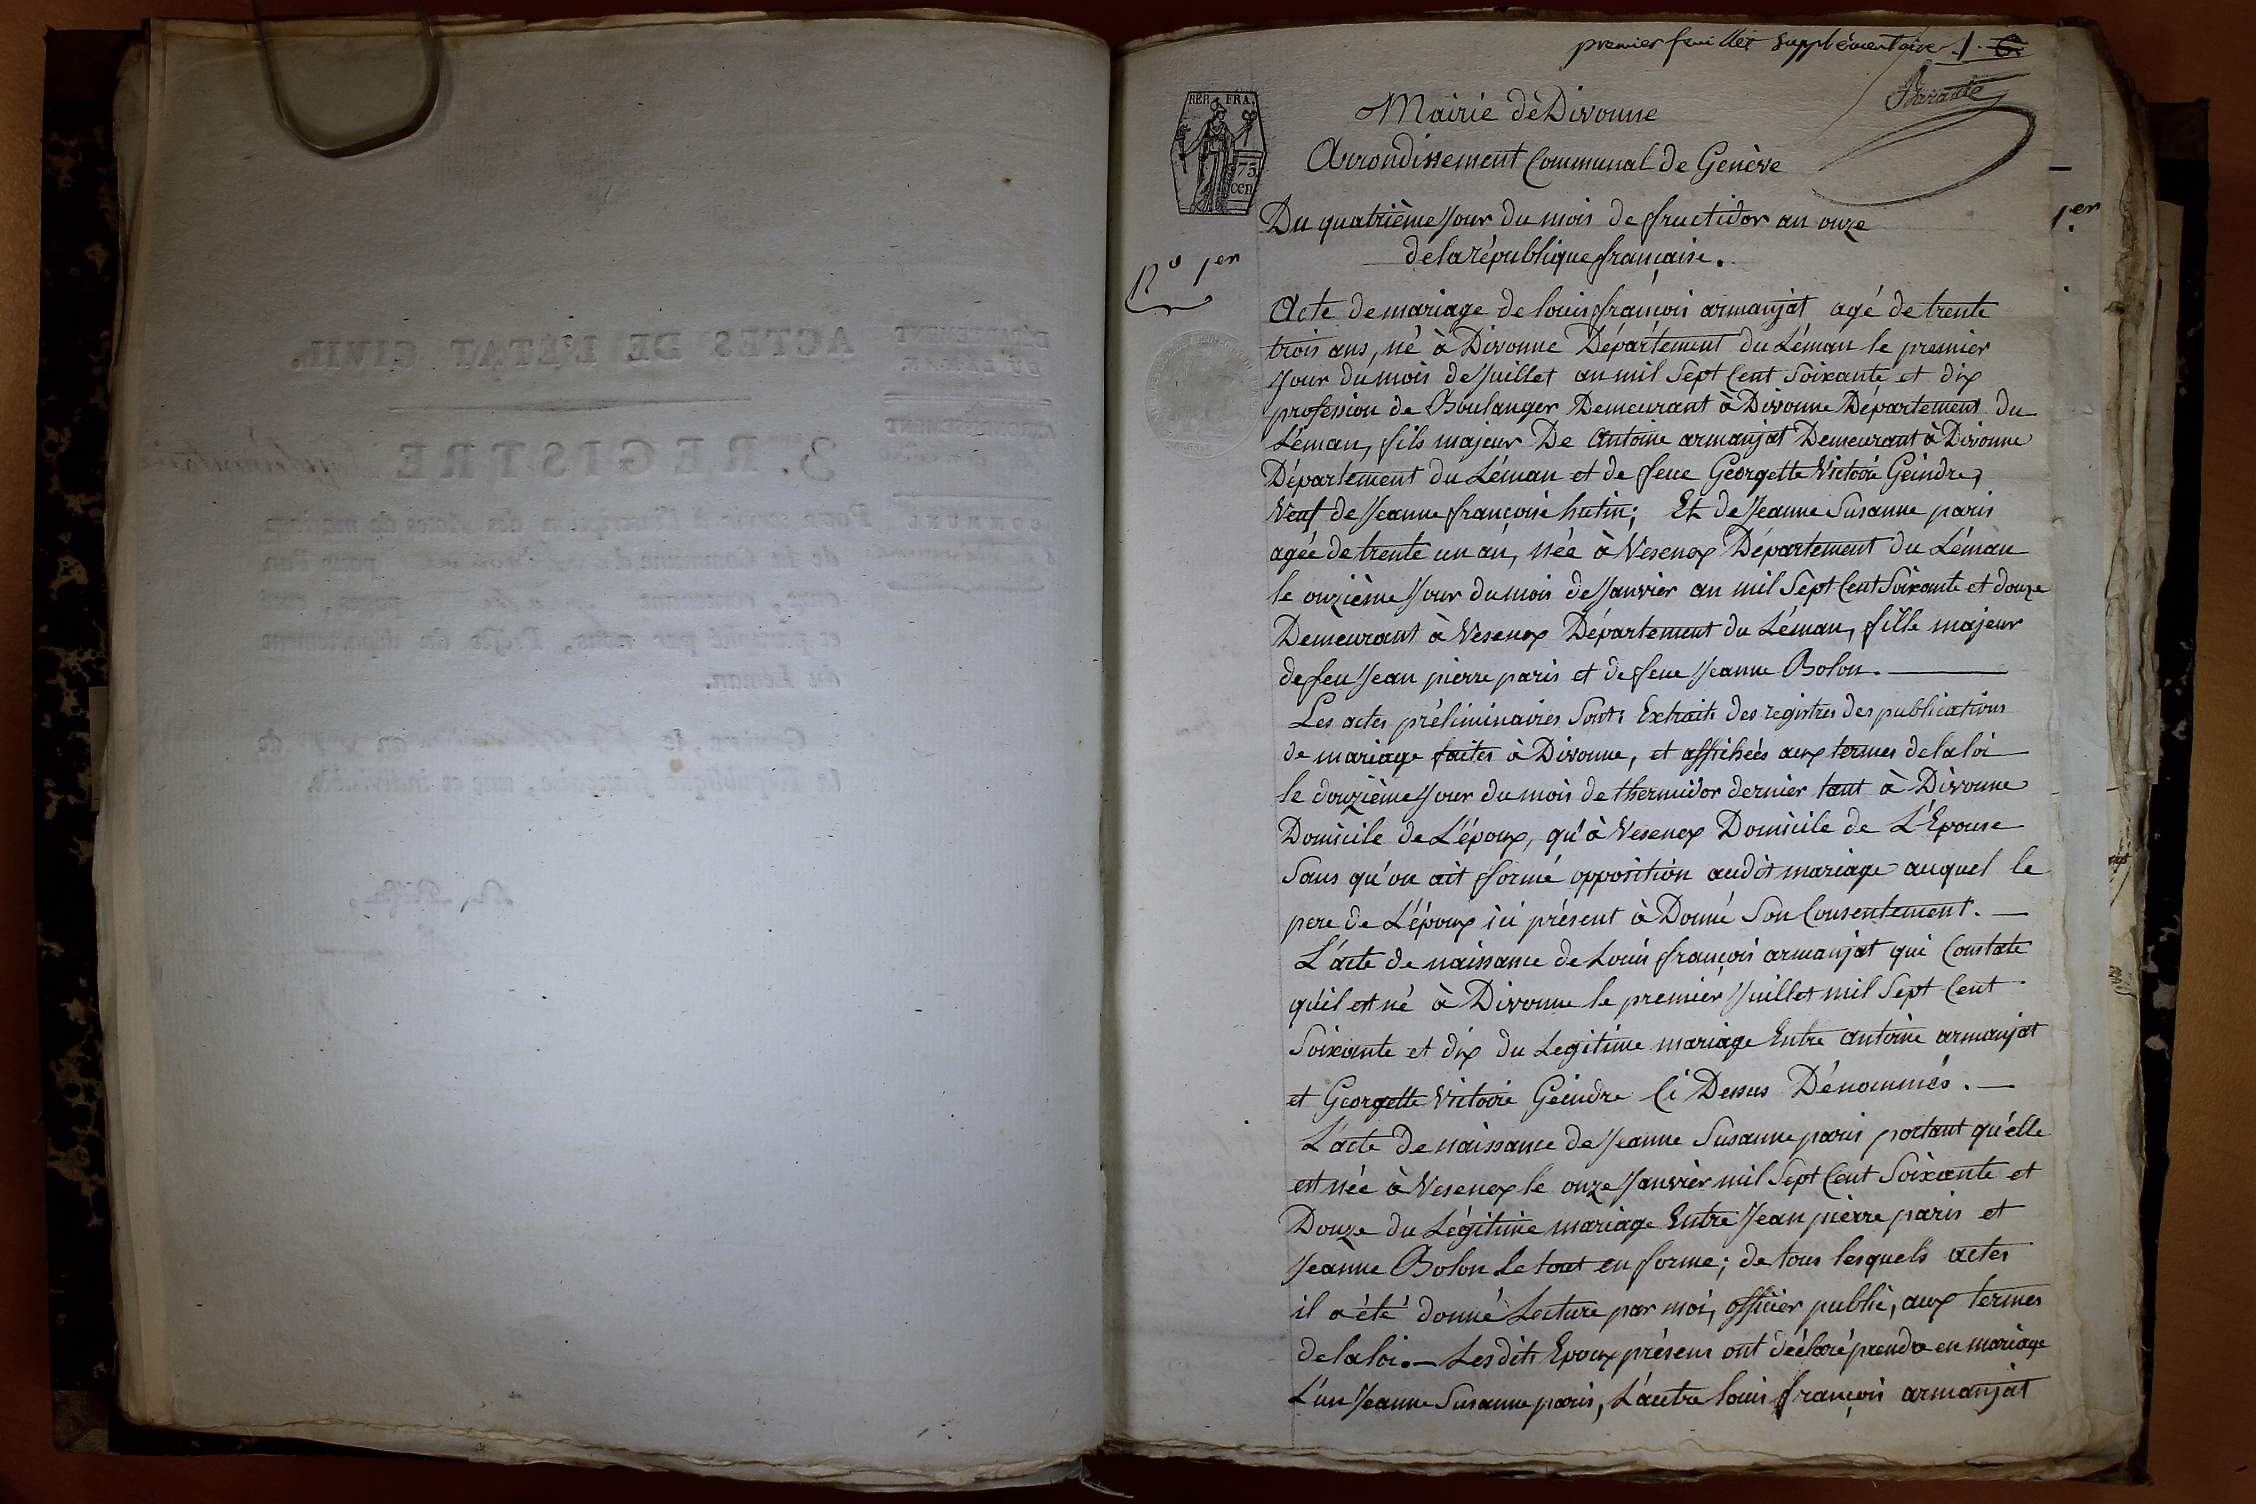 premier feuillet supplémentaire 1.
Barante
RÉP. FRA.
75
cen
Mairie de Divonne
Arrondissement Communal de Genève
Du quatrième Jour du mois de fructidor an onze
de la république française.
N.o 1.er
1.er
Acte de mariage de louis françois armanjat agé de trente
trois ans, né à Divonne Département du Léman le premier
Jour du mois de Juillet an mil Sept Cent Soixante et dix
profession de Boulanger Demeurant à Divonne Département du
Léman, fils majeur De Antoine armanjat Demeurant à Divonne
Département du Léman et de feue Georgette Victoire Geindre,
Veuf de Jeanne françoise hutin; Et de Jeanne Susanne paris
agée de trente un an, née à Vesenex Département du Léman
le onzième Jour du mois de Janvier an mil Sept Cent Soixante et douze
Demeurant à Vesenex Département du Léman, fille majeur
de feu Jean pierre paris et de feue Jeanne Bolon.
Les actes préliminaires Sont: Extraits des registres des publications
de mariage faites à Divonne, et affichées aux termes de la loi
le douzième Jour du mois de thermidor dernier tant à Divonne
Domicile de L'époux, qu'à Vesenex Domicile de L'Epouse
Sans qu'on ait formé opposition audit mariage auquel le
pere de L'époux ici présent à Donné Son Consentement.
L'acte de naissance de Louis françois armanjat qui Constate
qu'il est né à Divonne le premier Juillet mil Sept Cent
Soixante et dix du Legitime mariage Entre antoine armanjat
et Georgette Victoire Geindre Ci Dessus Dénommés.
L'acte De naissance de Jeanne Susanne paris portant qu'elle
est née à Vesenex le onze Janvier mil Sept Cent Soixante et
Douze du Légitime mariage Entre Jean pierre paris et
Jeanne Bolon Le tout en forme; de tous lesquels actes
il a été donné Lecture par moi, officier public, aux termes
de la loi. Les dits Epoux présens ont déclaré prendre en mariage
L'un Jeanne Susanne paris, L'autre louis françois armanjat